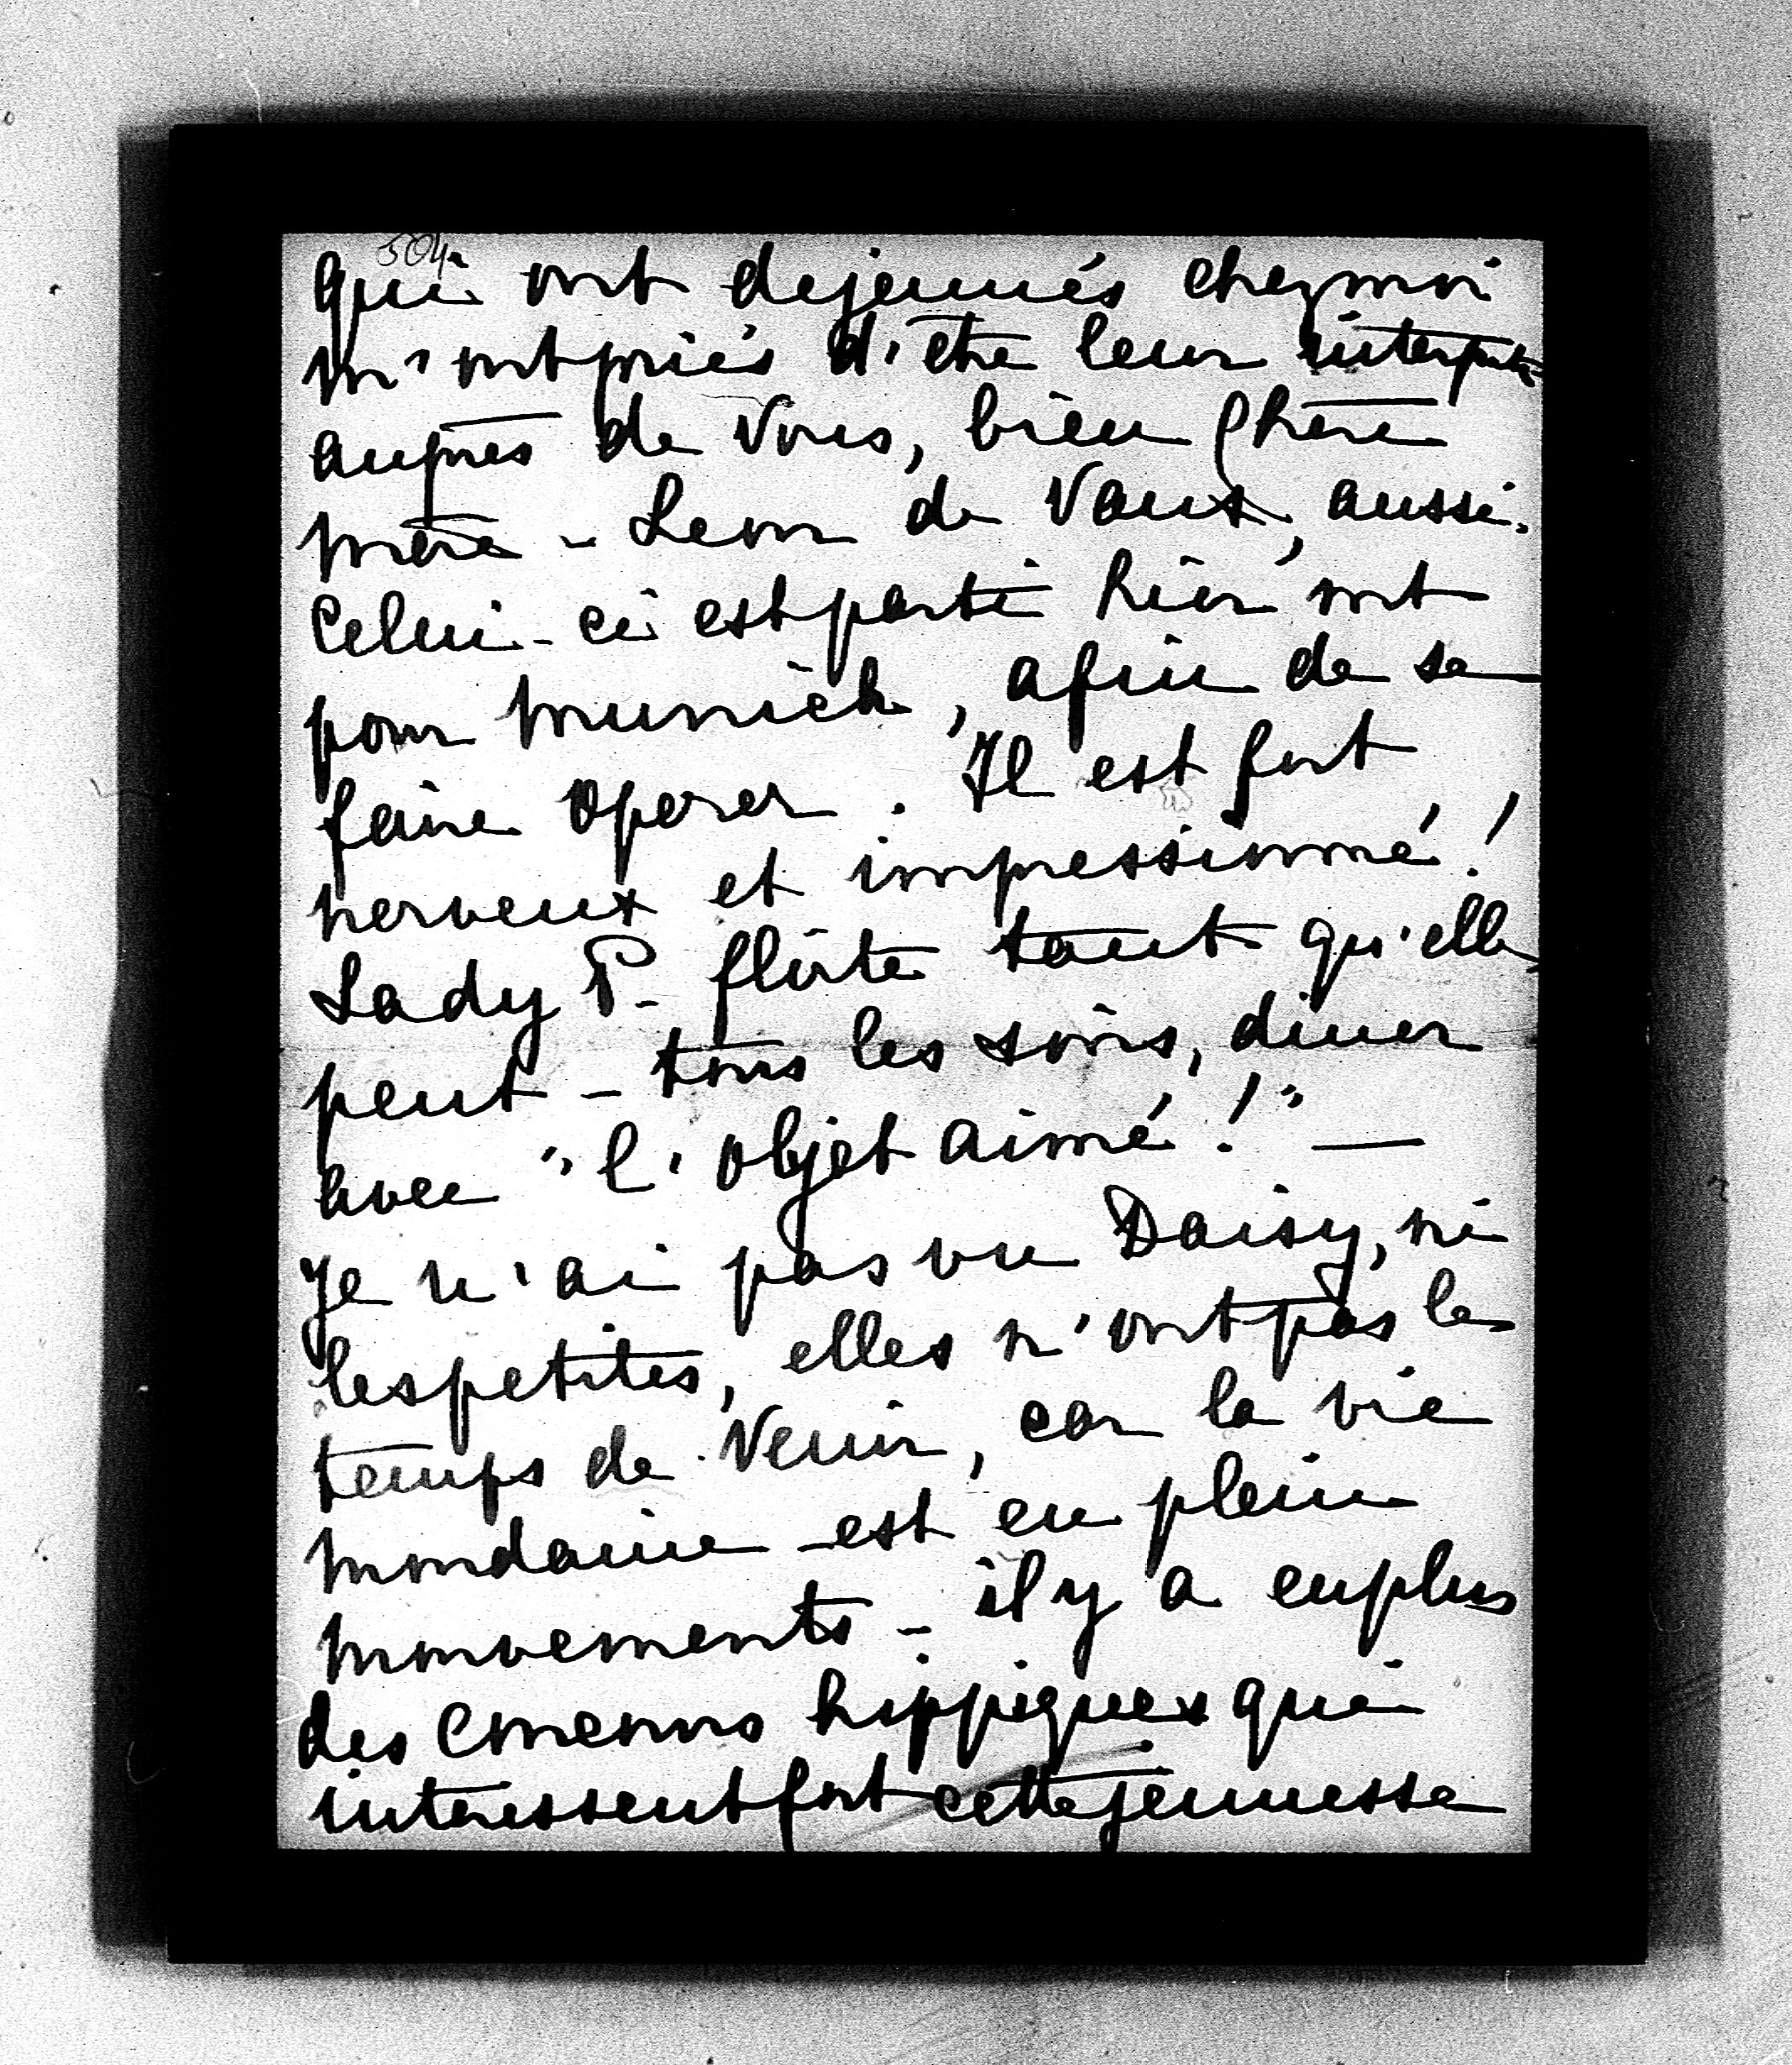 504
qui ont dejeunnés chez moi
m'ont priés d'être leur interprète
auprès de Vous, bien Chère
mère - Leon de Vaux, aussi.
Celui-ci est parti hier
pour Munich, afin de se
faire operer. Il est fort
nerveux et impressionné!
Lady P- flirte tant qu'elle
peut - tous les soirs, diner
avec "l'objet aimé!" —
Je n'ai pas vu Daisy, ni
les petites, elles n'ont pas le
temps de Venir, car la vie
mondaine est en plein
mouvements - il y a en plus
des Concours hippiques qui
interessent fort cette jeunesse